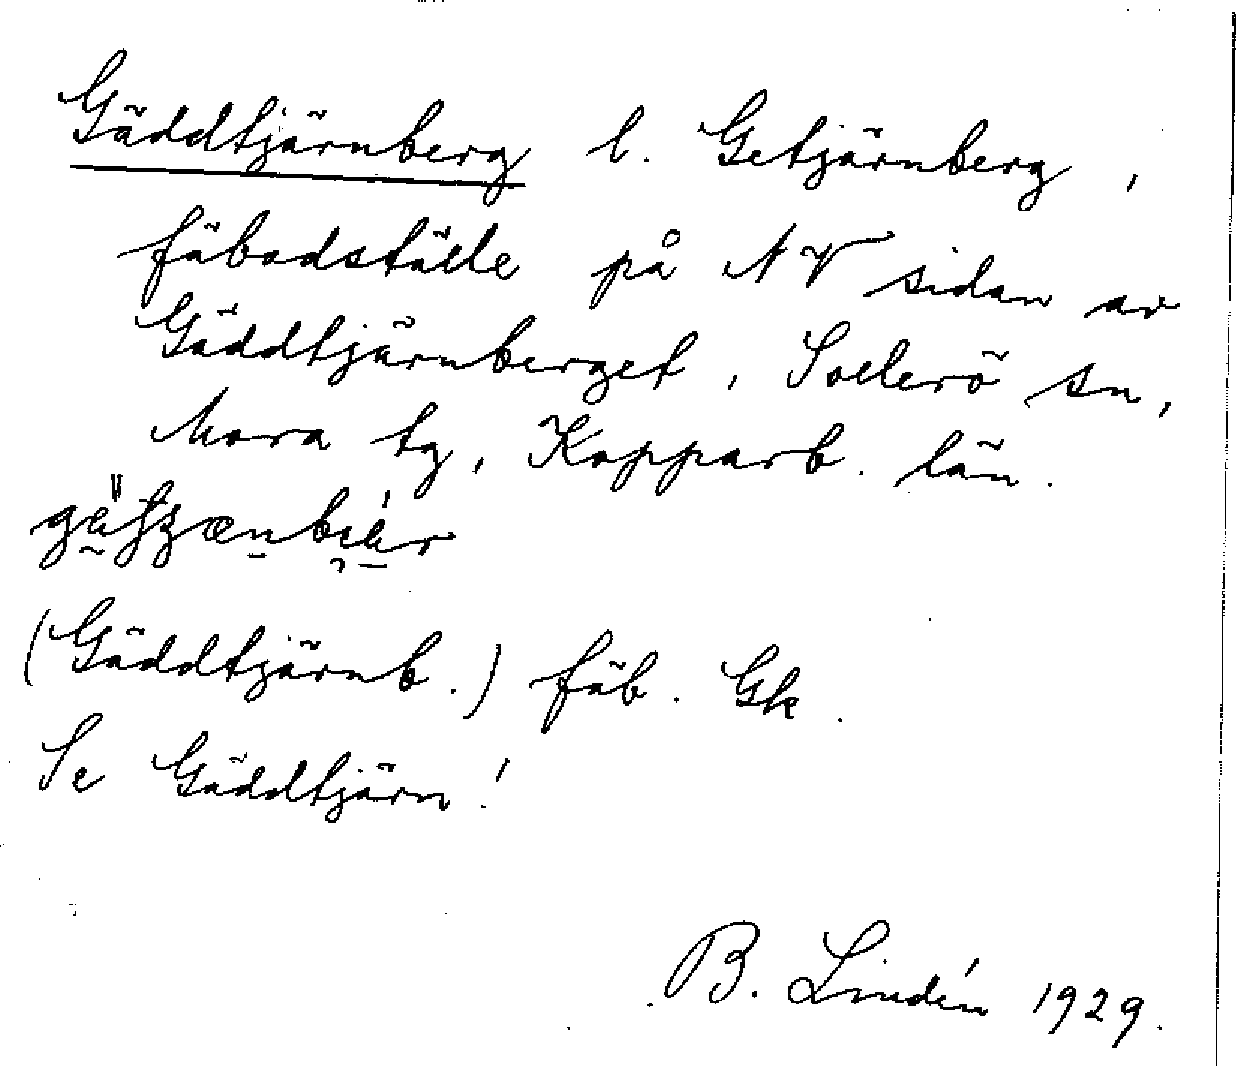 Gäddtjärnberg l. Getjärnberg,
fäbodställe på NV sidan av
Gäddtjärnberget, Sollerö sn,
Mora tg, Kopparb. län.
(Gäddtjärnb.) fäb. Gk.
Se Gäddtjärn!
B. Lindén 1929.